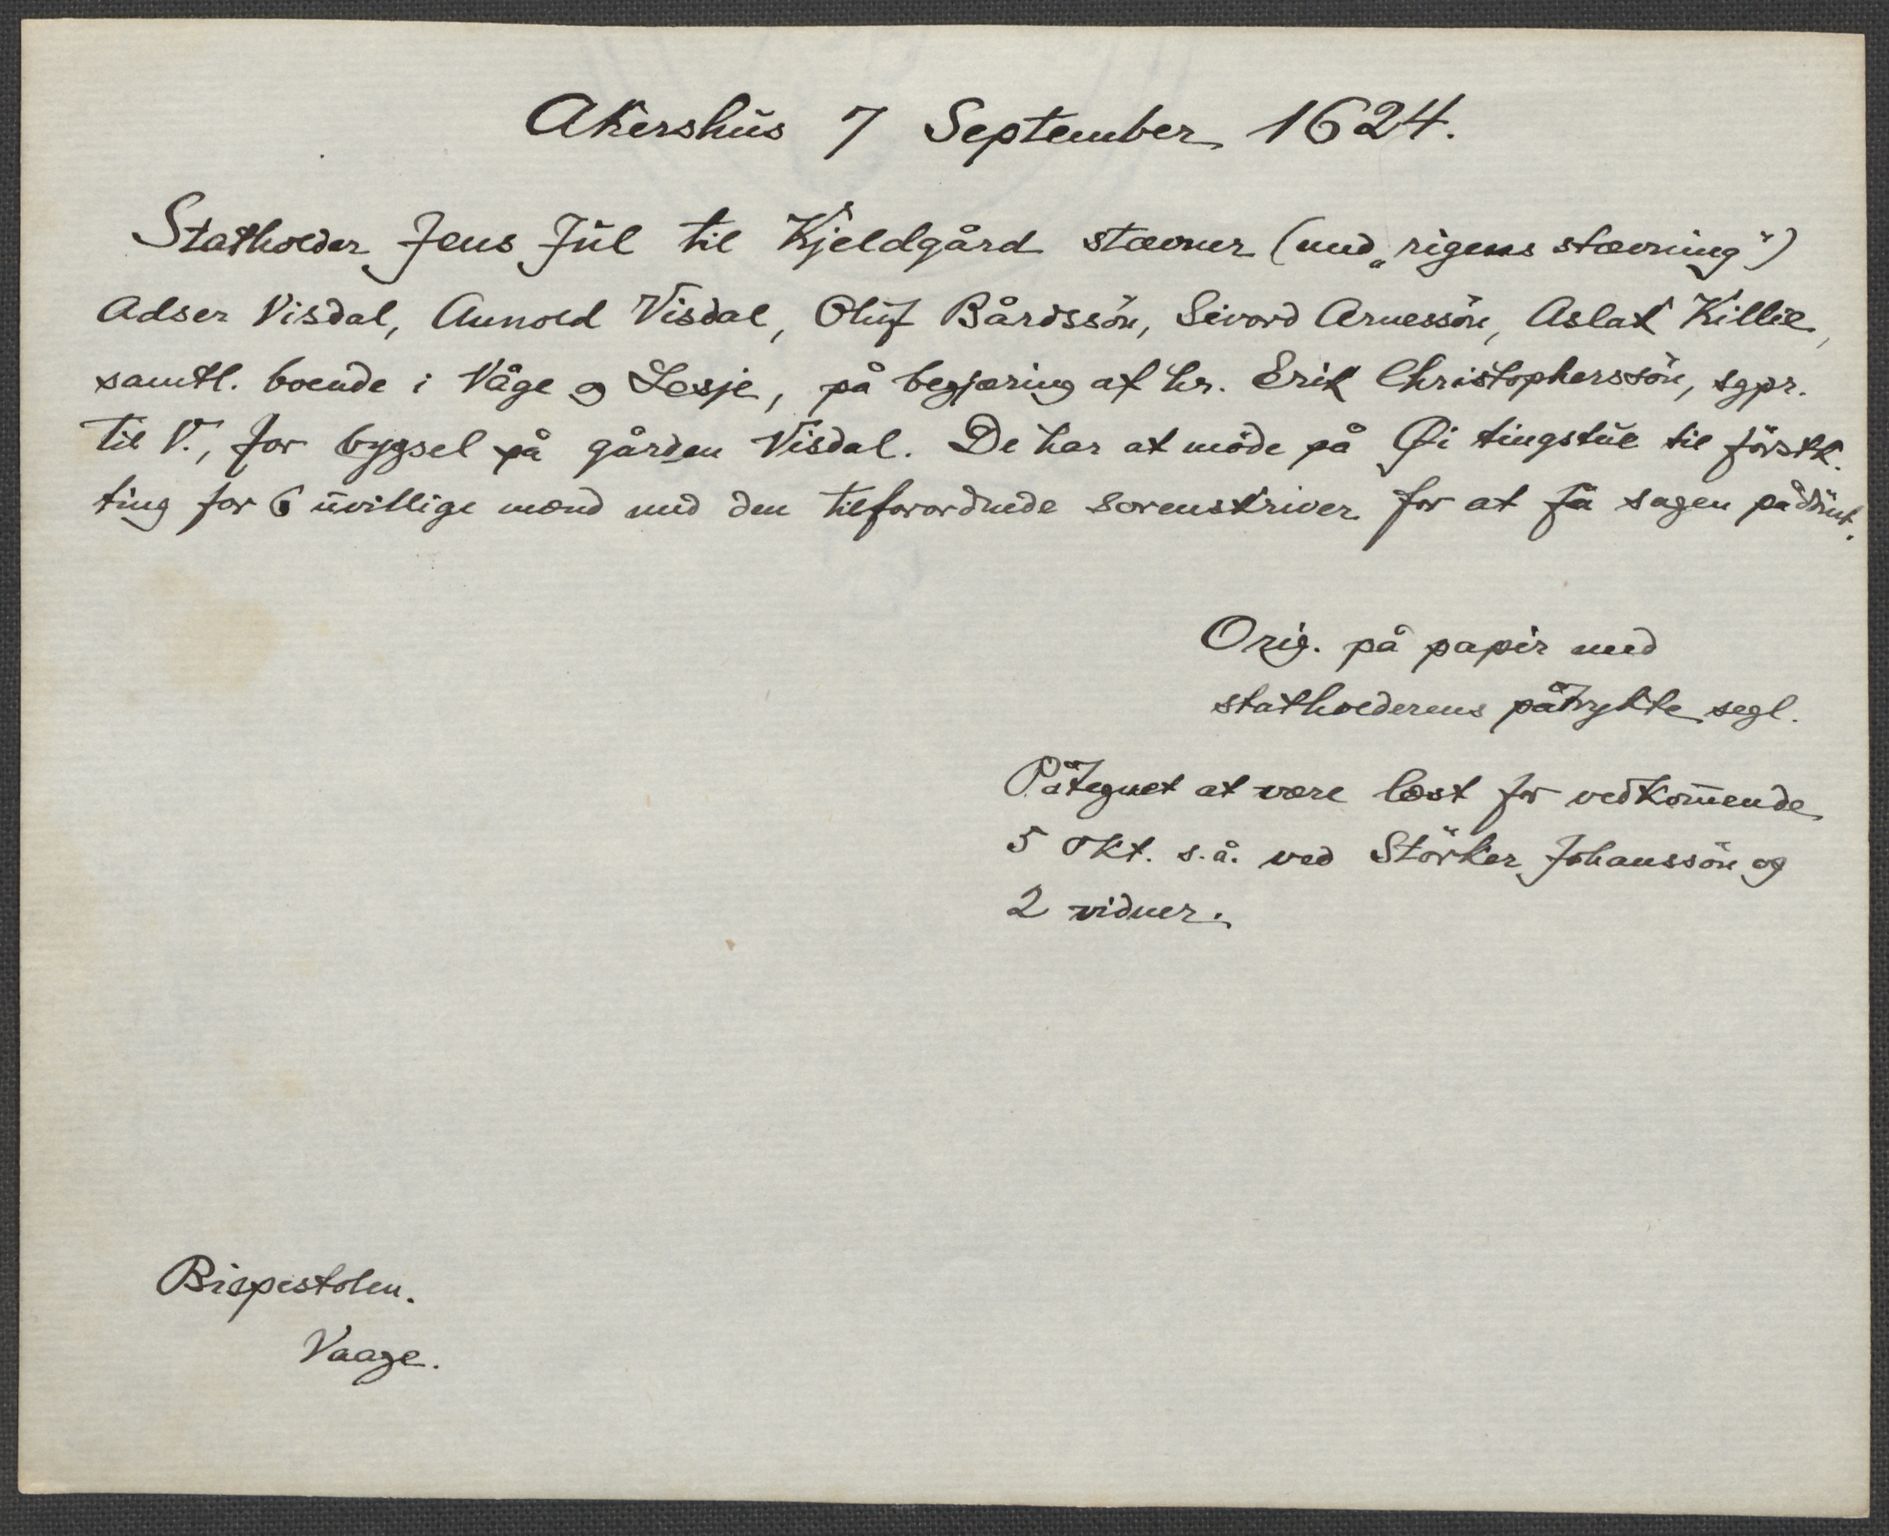 Akershus 7 September 1624.
Statholder Jens Jul til Kjeldgård stævner (med „rigens stævning")
Adser Visdal, Aunold Visdal, Oluf Bårdssön, Sivord Arnessön, Aslak Killie,
samtl. boende i Våge og Lesje, på begjæring af hr. Erik Christopherssön, sgpr.
til V., for bygsel på gården Visdal. De har at möde på Øi tingstue til förstk.
ting for 6 uvillige mænd med den tilforordnede sorenskriver for at få sagen pådömt.
Orig. på papir med
statholderens påtrykte segl.
Påtegnet at være læst for vedkom̅ende
5 okt. s.å. ved Störker Johanssön og
2 vidner.
Bispestolen.
Vaage.